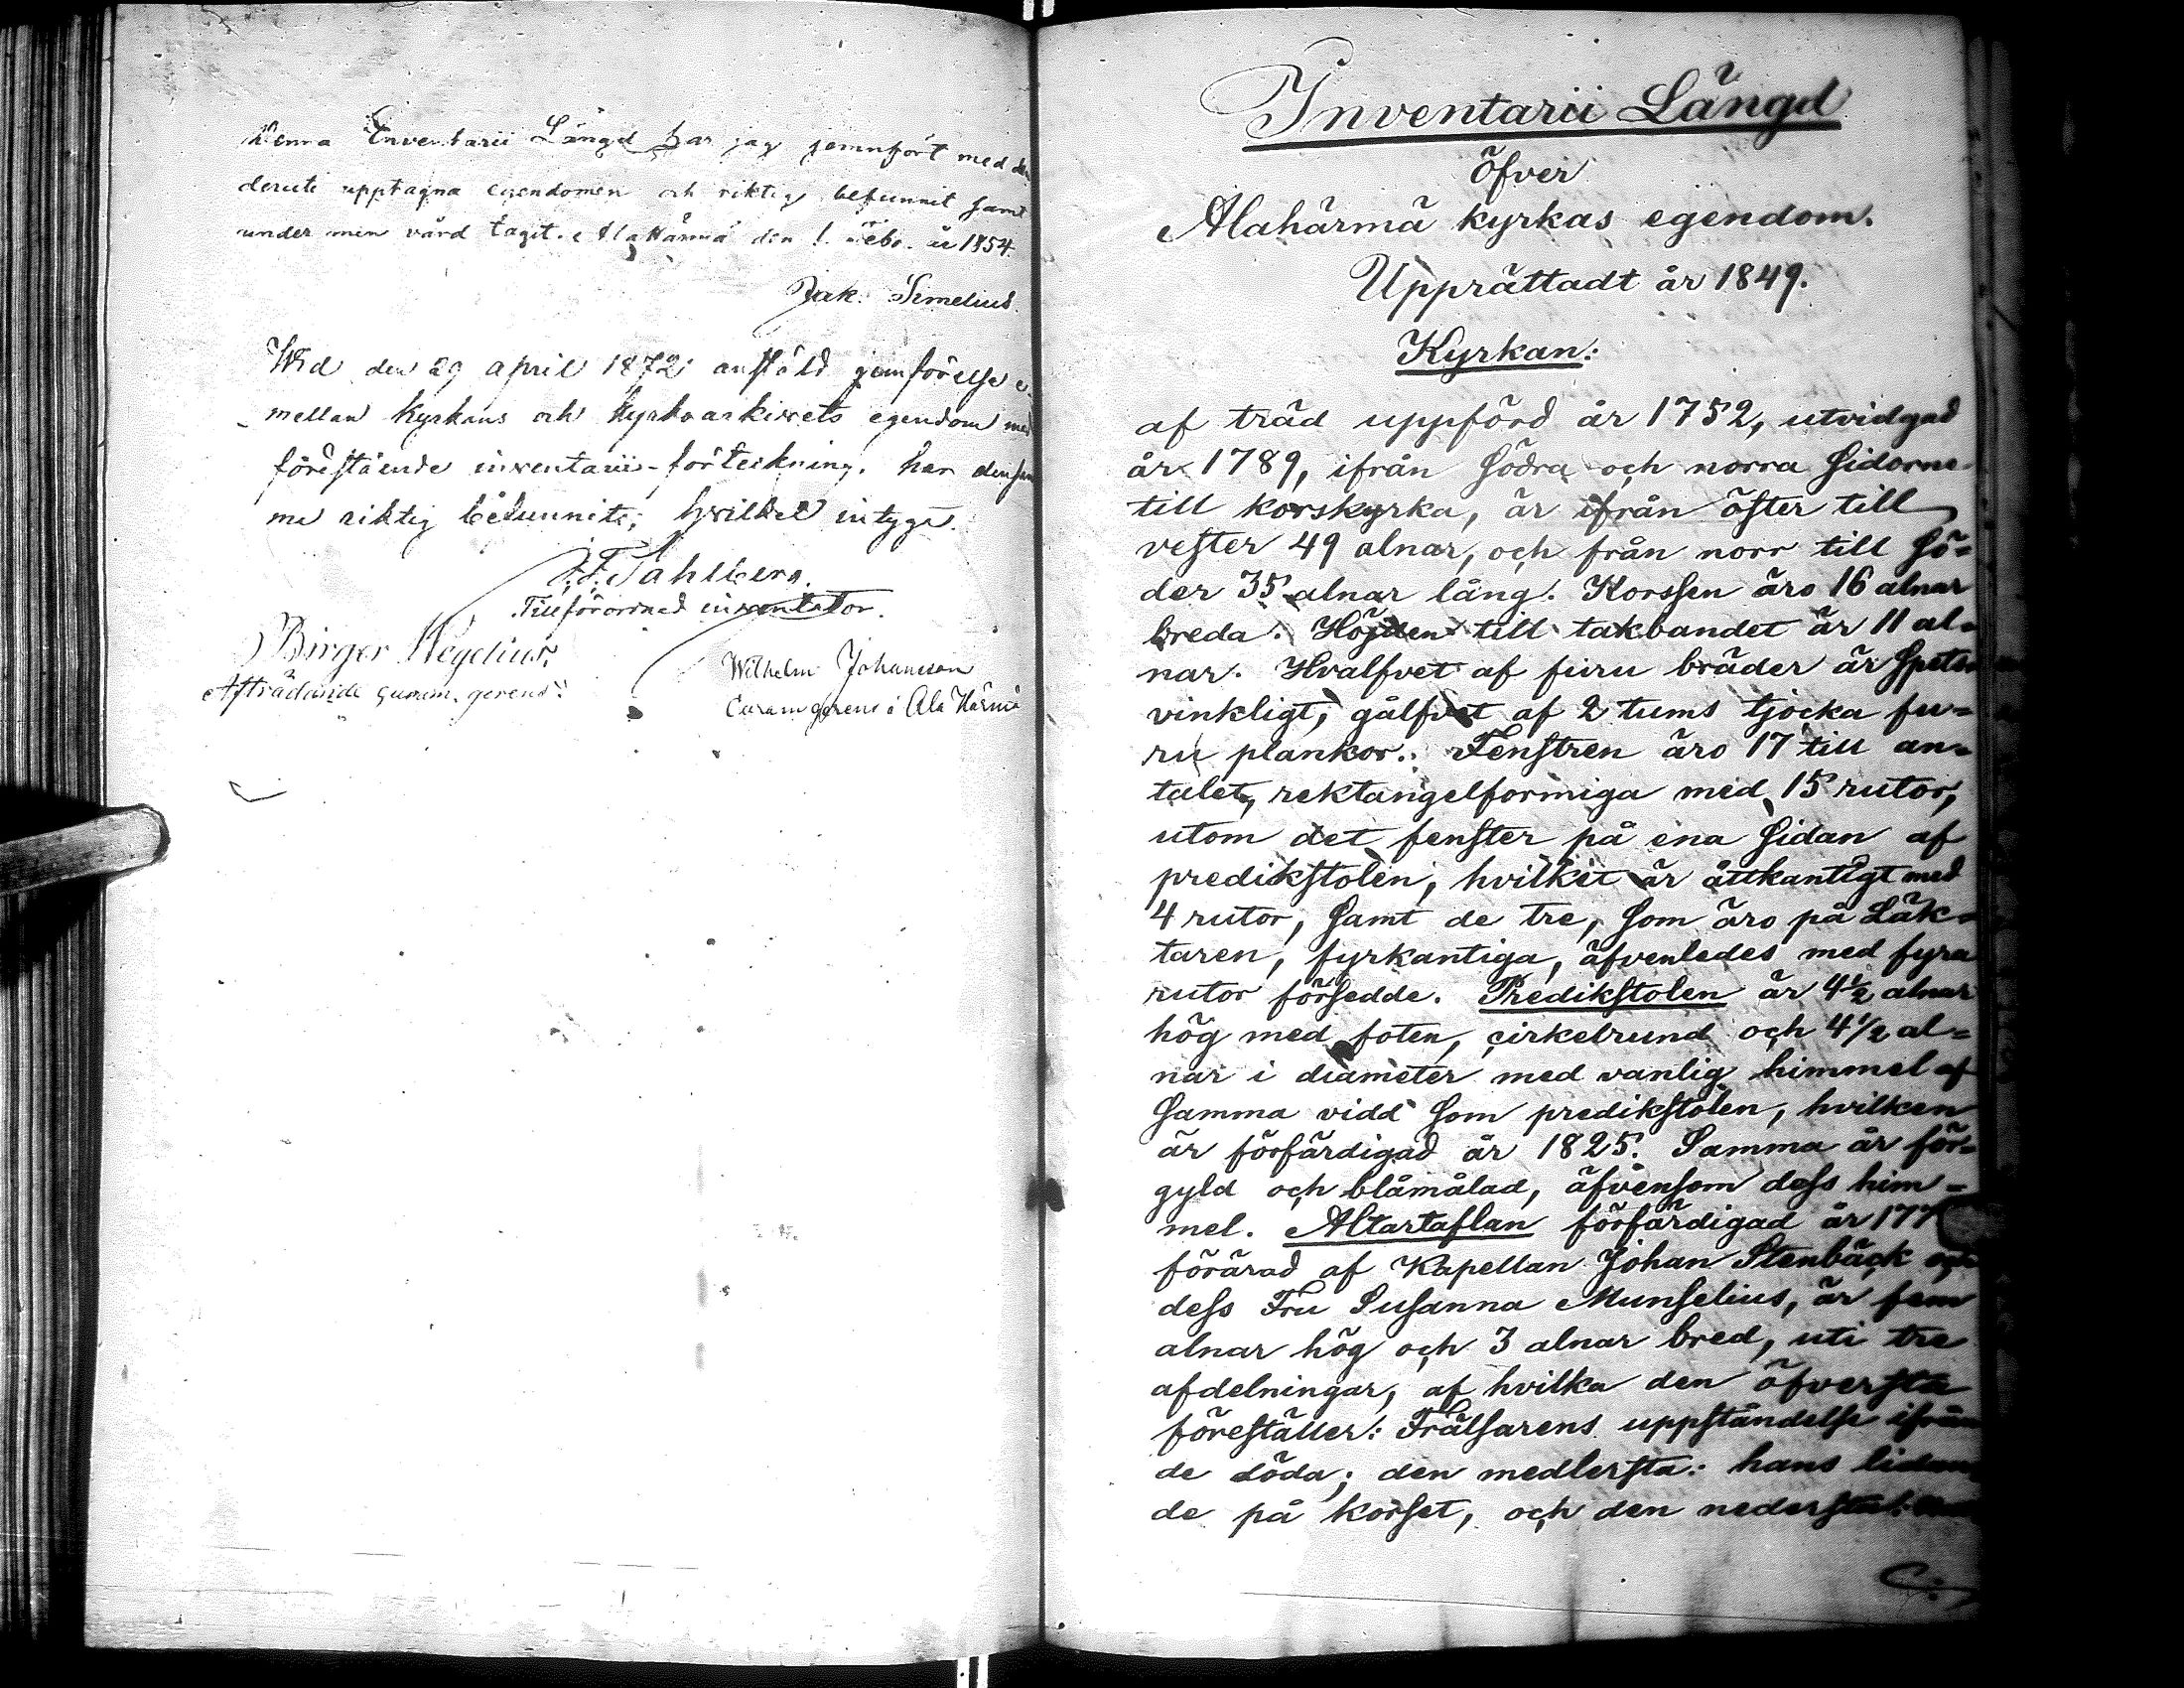 Denna Inventarii Längd har jag jemnfört med den
deruti upptagna egendomen och riktig befunnit samt
under min vård tagit. Alahärmä den 1. Febr. år 1854.
Jak. Simelius.
Wid den 29 april 1872 anstäld jemförelse e-
mellan Kyrkans och Kyrkoarkivets egendom med
förestående inventarii-förteckning, har densam
me riktig befunnits; hvilket intygar.
J. F. Tahlberg.
Tillförordnad inventator.
Birger Hegelius.
Afträdande curam. gerens.
Wilhelm Johansson
Curam gerens i Ala Härmä
Inventarii Längd
öfver
Alahärmä kyrkas egendom.
Upprättadt år 1849.
Kyrkan:
af träd uppförd år 1752, utvidgad
år 1789, ifrån södra och norra sidorne
till korskyrka, är ifrån öster till
vester 49 alnar, och från norr till sö=
der 35 alnar lång. Korssen äro 16 alnar
breda. Höjden till takbandet är 11 al=
nar. Hvalfvet af furu bräder är spets
vinkligt, gålfvet af 2 tums tjocka fu=
ru plankor. Fenstren äro 17 till an=
talet, rektangelformiga med 15 rutor,
utom det fenster på ena sidan af
predikstolen, hvilket är åttkantigt med
4 rutor, samt de tre, som äro på Läk=
taren, fyrkantiga, äfvenledes med fyra
rutor försedde. Predikstolen är 4½ alnar
hög med foten, cirkelrund och 4½ al=
nar i diameter med vanlig himmel af
samma vidd som predikstolen, hvilken
är förfärdigad år 1825. Samma år för=
gyld och blåmålad, äfvensom dess him=
mel. Altartaflan förfärdigad år 177
förärad af Kapellan Johan Stenbäck och
dess Fru Susanna Munselius, är fem
alnar hög och 3 alnar bred, uti tre
afdelningar, af hvilka den öfversta
föreställer: Frälsarens uppståndelse ifrån
de döda; den medlersta: hans lidan
de på korset, och den nedersta: